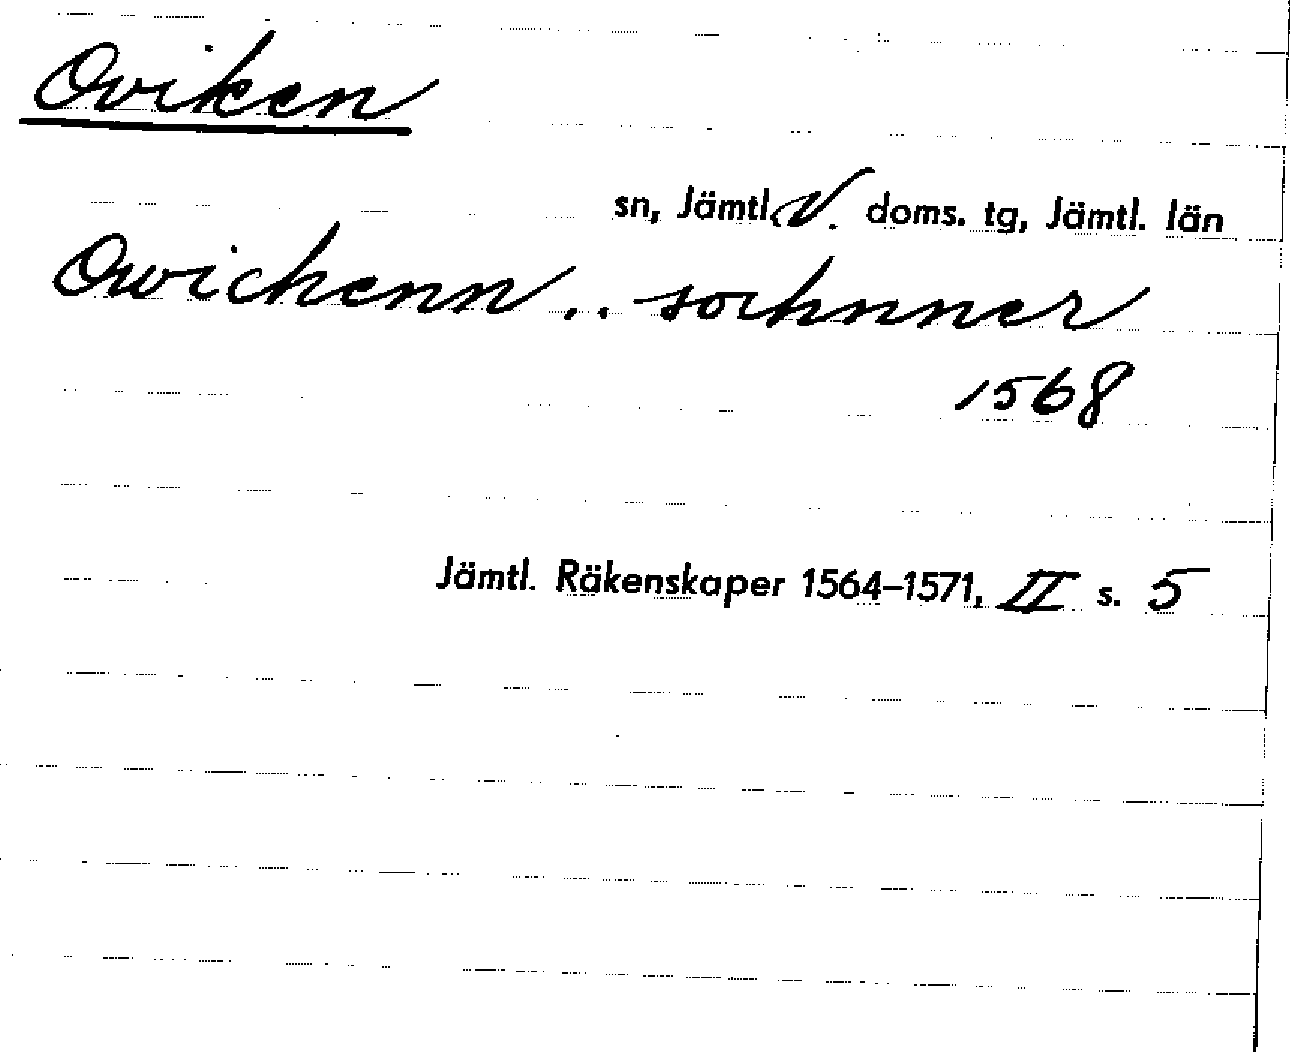 Oviken
sn, Jämtl. V. doms. tg, Jämtl. län
Owichenn .. sochnner
1568
Jämtl. Räkenskaper 1564–1571, II s. 5